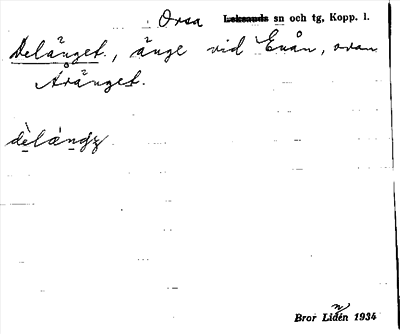 Orsa Leksands sn och tg, Kopp. l.
Delänget, änge vid Enån, ovan
Åränget.
Bror Lidén 1934